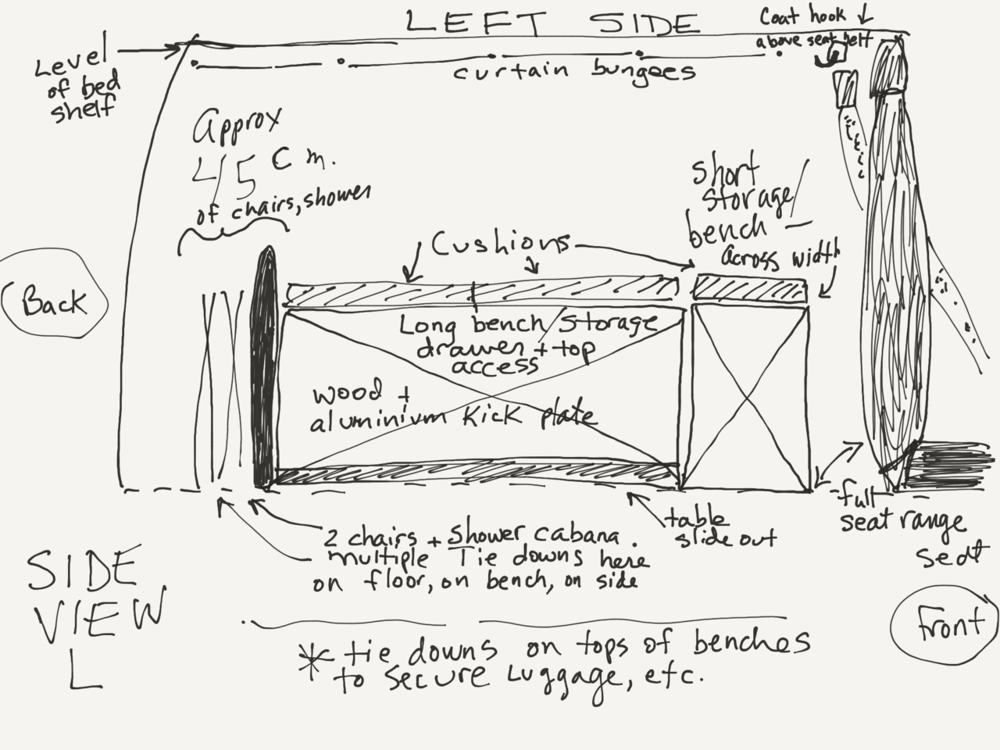 LEFT SIDE
Coat hook
above seat belt
Level
of bed
shelf
curtain bungees
Approx
45 cm.
of chairs, shower
short
storage
bench
across width
Cushions
Back
Long bench/storage
drawer + top
access
wood +
aluminium kick plate
2 chairs + Shower cabana.
multiple Tie downs here
on floor, on bench, on side
table
slide out
full
seat range
seat
SIDE
VIEW
L
Front
* tie downs on tops of benches
to secure Luggage, etc.